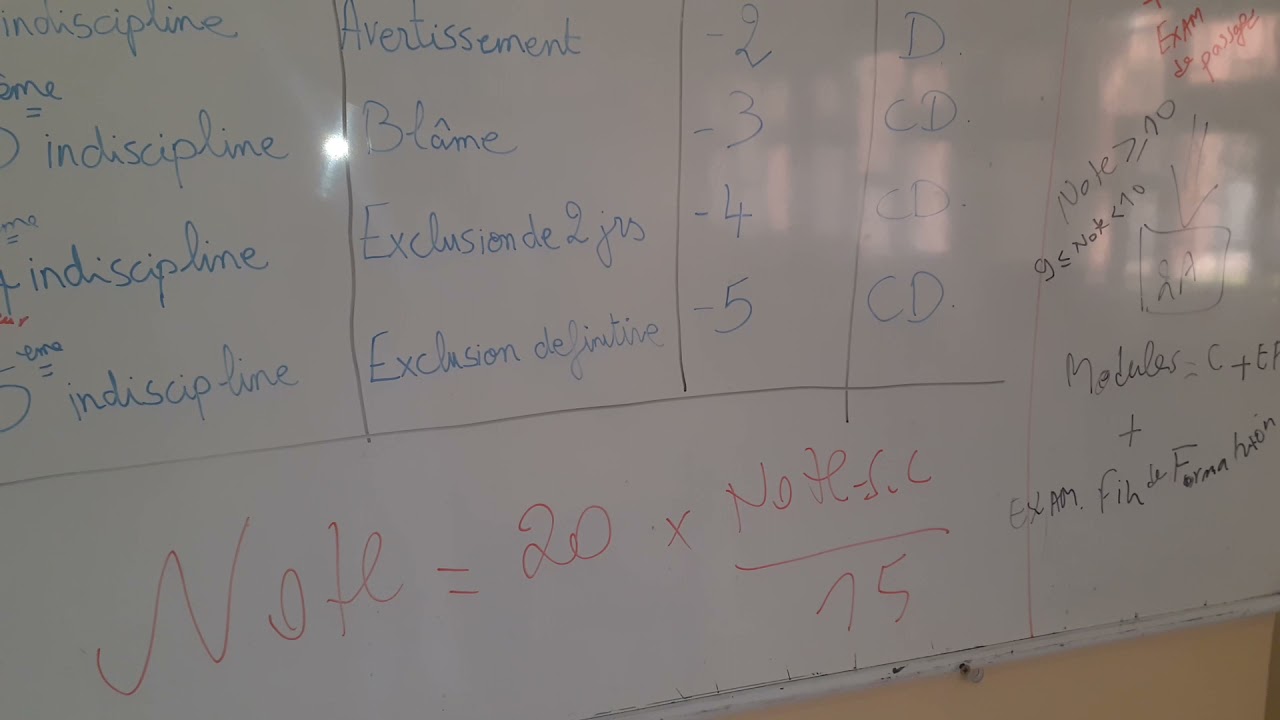 indiscipline Avertissement -2 D.
ème
indiscipline Blâme -3 CD.
indiscipline Exclusion de 2 jrs -4 CD.
5 ème indiscipline Exclusion definitive -5 CD.
Note = 20 x Note s.c
15
EXAM
de passage
Note ⩾ 10
9 ≤ Note < 10
2A
Modules = C + EF
+
EXAM. Fin de Formation